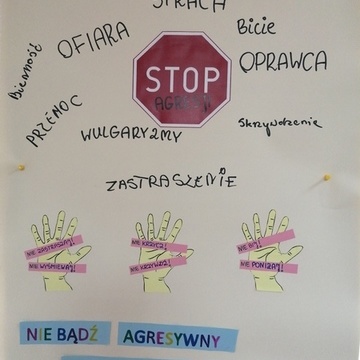 STRATA
Bicie
OFIARA
Bierność
STOP
AGRESJI
OPRAWCA
PRZEMOC
WULGARYZMY
Skrzywdzenie
ZASTRASZENIE
NIE ZASTRASZAJ!
NIE WYŚMIEWAJ!
NIE KRZYCZ!
NIE KRZYWDŹ!
NIE BIJ!
NIE PONIŻAJ!
NIE BĄDŹ AGRESYWNY